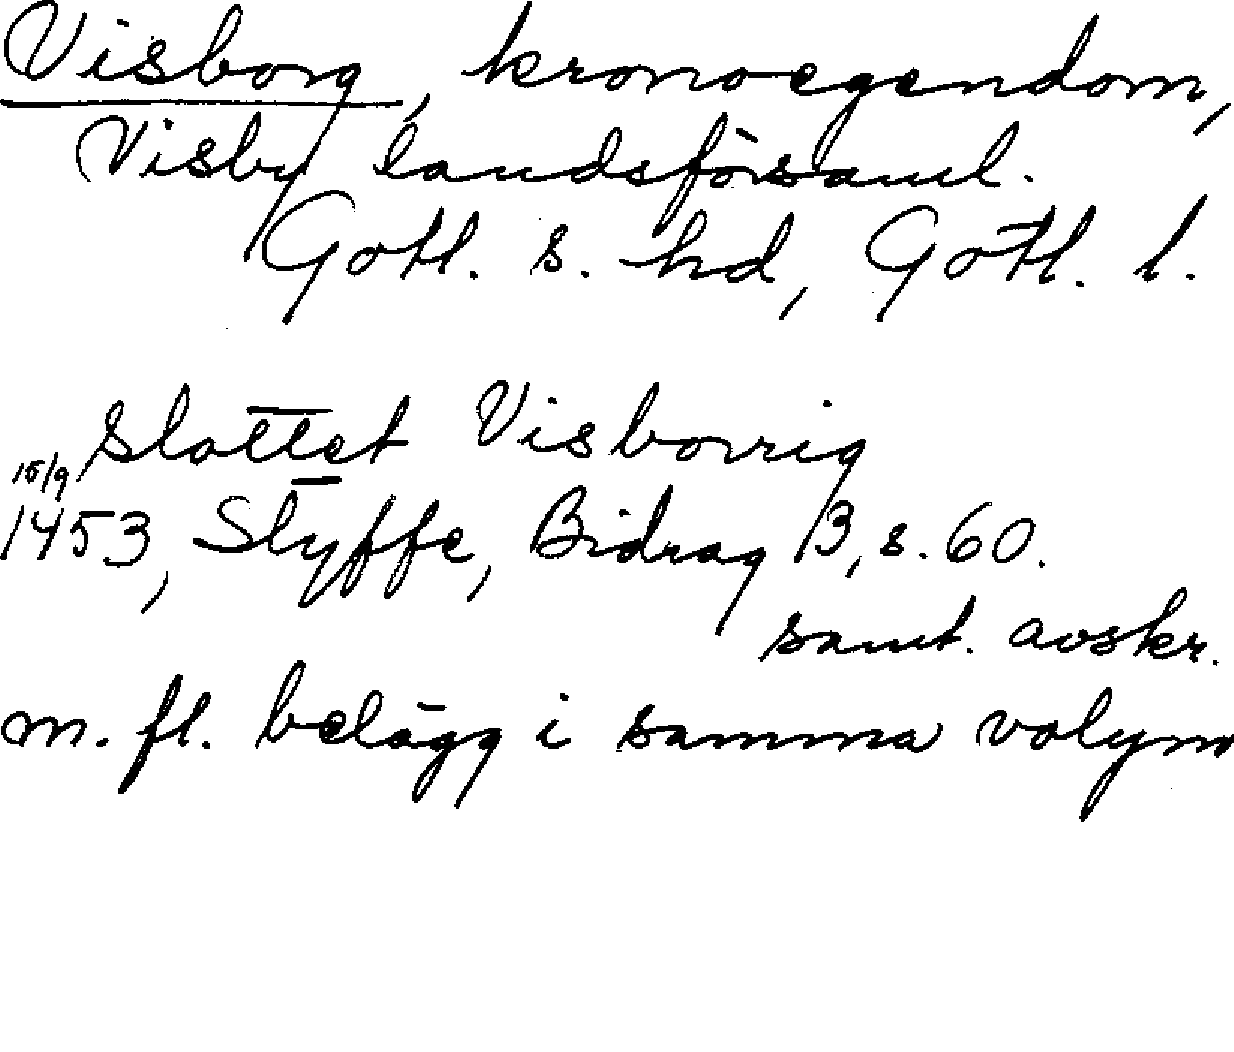 Visborg, kronoegendom,
Visby landsförsaml.
Gotl. s. hd, Gotl. l.
slottet Visborrig
15/9
1453, Styffe, Bidrag 3, s. 60.
samt. avskr.
m. fl. belägg i samma volym